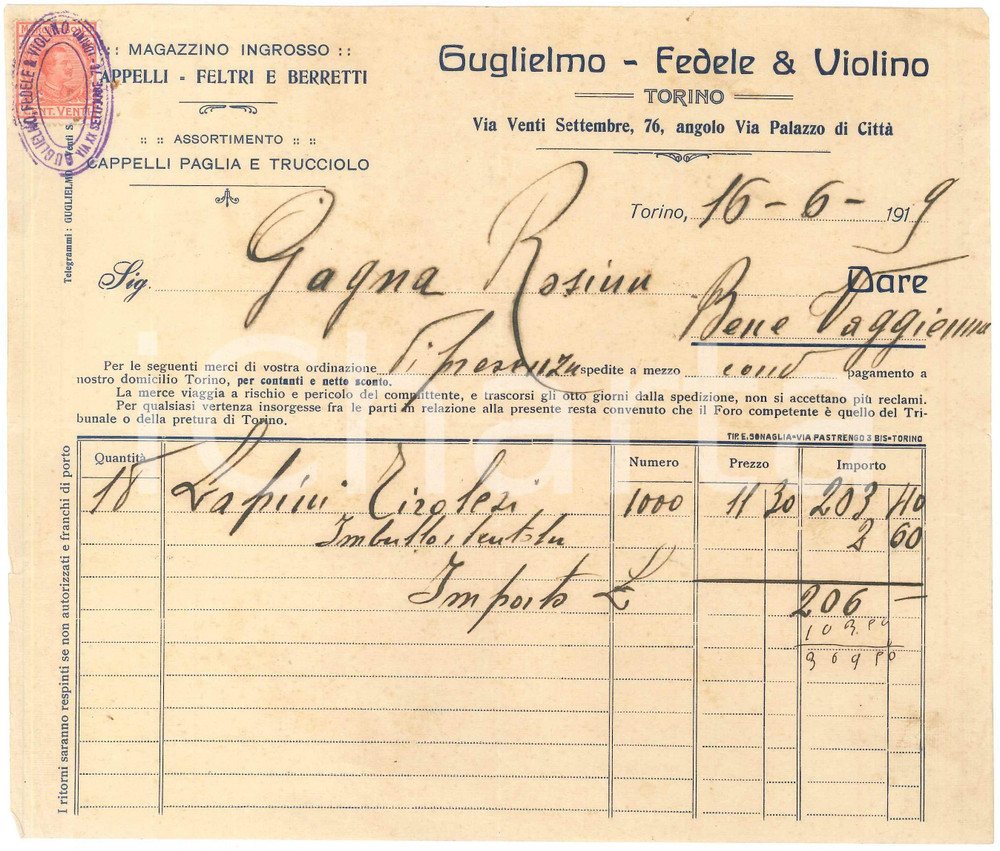 :: MAGAZZINO INGROSSO ::
CAPPELLI - FELTRI E BERRETTI
:: :: ASSORTIMENTO :: ::
CAPPELLI PAGLIA E TRUCCIOLO
GUGLIELMO, FEDELE & VIOLINO
VIA XX SETTEMBRE, 76
Telegrammi: GUGLIELMO
Guglielmo - Fedele & Violino
TORINO
Via Venti Settembre, 76, angolo Via Palazzo di Città
Torino, 16 - 6 - 1919
Sig. Gagna Rosina Dare
Bene Vaggienna
Per le seguenti merci di vostra ordinazione Di presenza spedite a mezzo cond pagamento a
nostro domicilio Torino, per contanti e netto sconto.
La merce viaggia a rischio e pericolo del committente, e trascorsi gli otto giorni dalla spedizione, non si accettano più reclami.
Per qualsiasi vertenza insorgesse fra le parti in relazione alla presente resta convenuto che il Foro competente è quello del Tri-
bunale o della pretura di Torino.
TIP. E. SONAGLIA - VIA PASTRENGO 3 BIS - TORINO
I ritorni saranno respinti se non autorizzati e franchi di porto
Quantità Numero Prezzo Importo
18 Lapini Tirolesi 1000 11 30 203 40
2 60
Importo L 206 —
103.80
309 80
iCharta